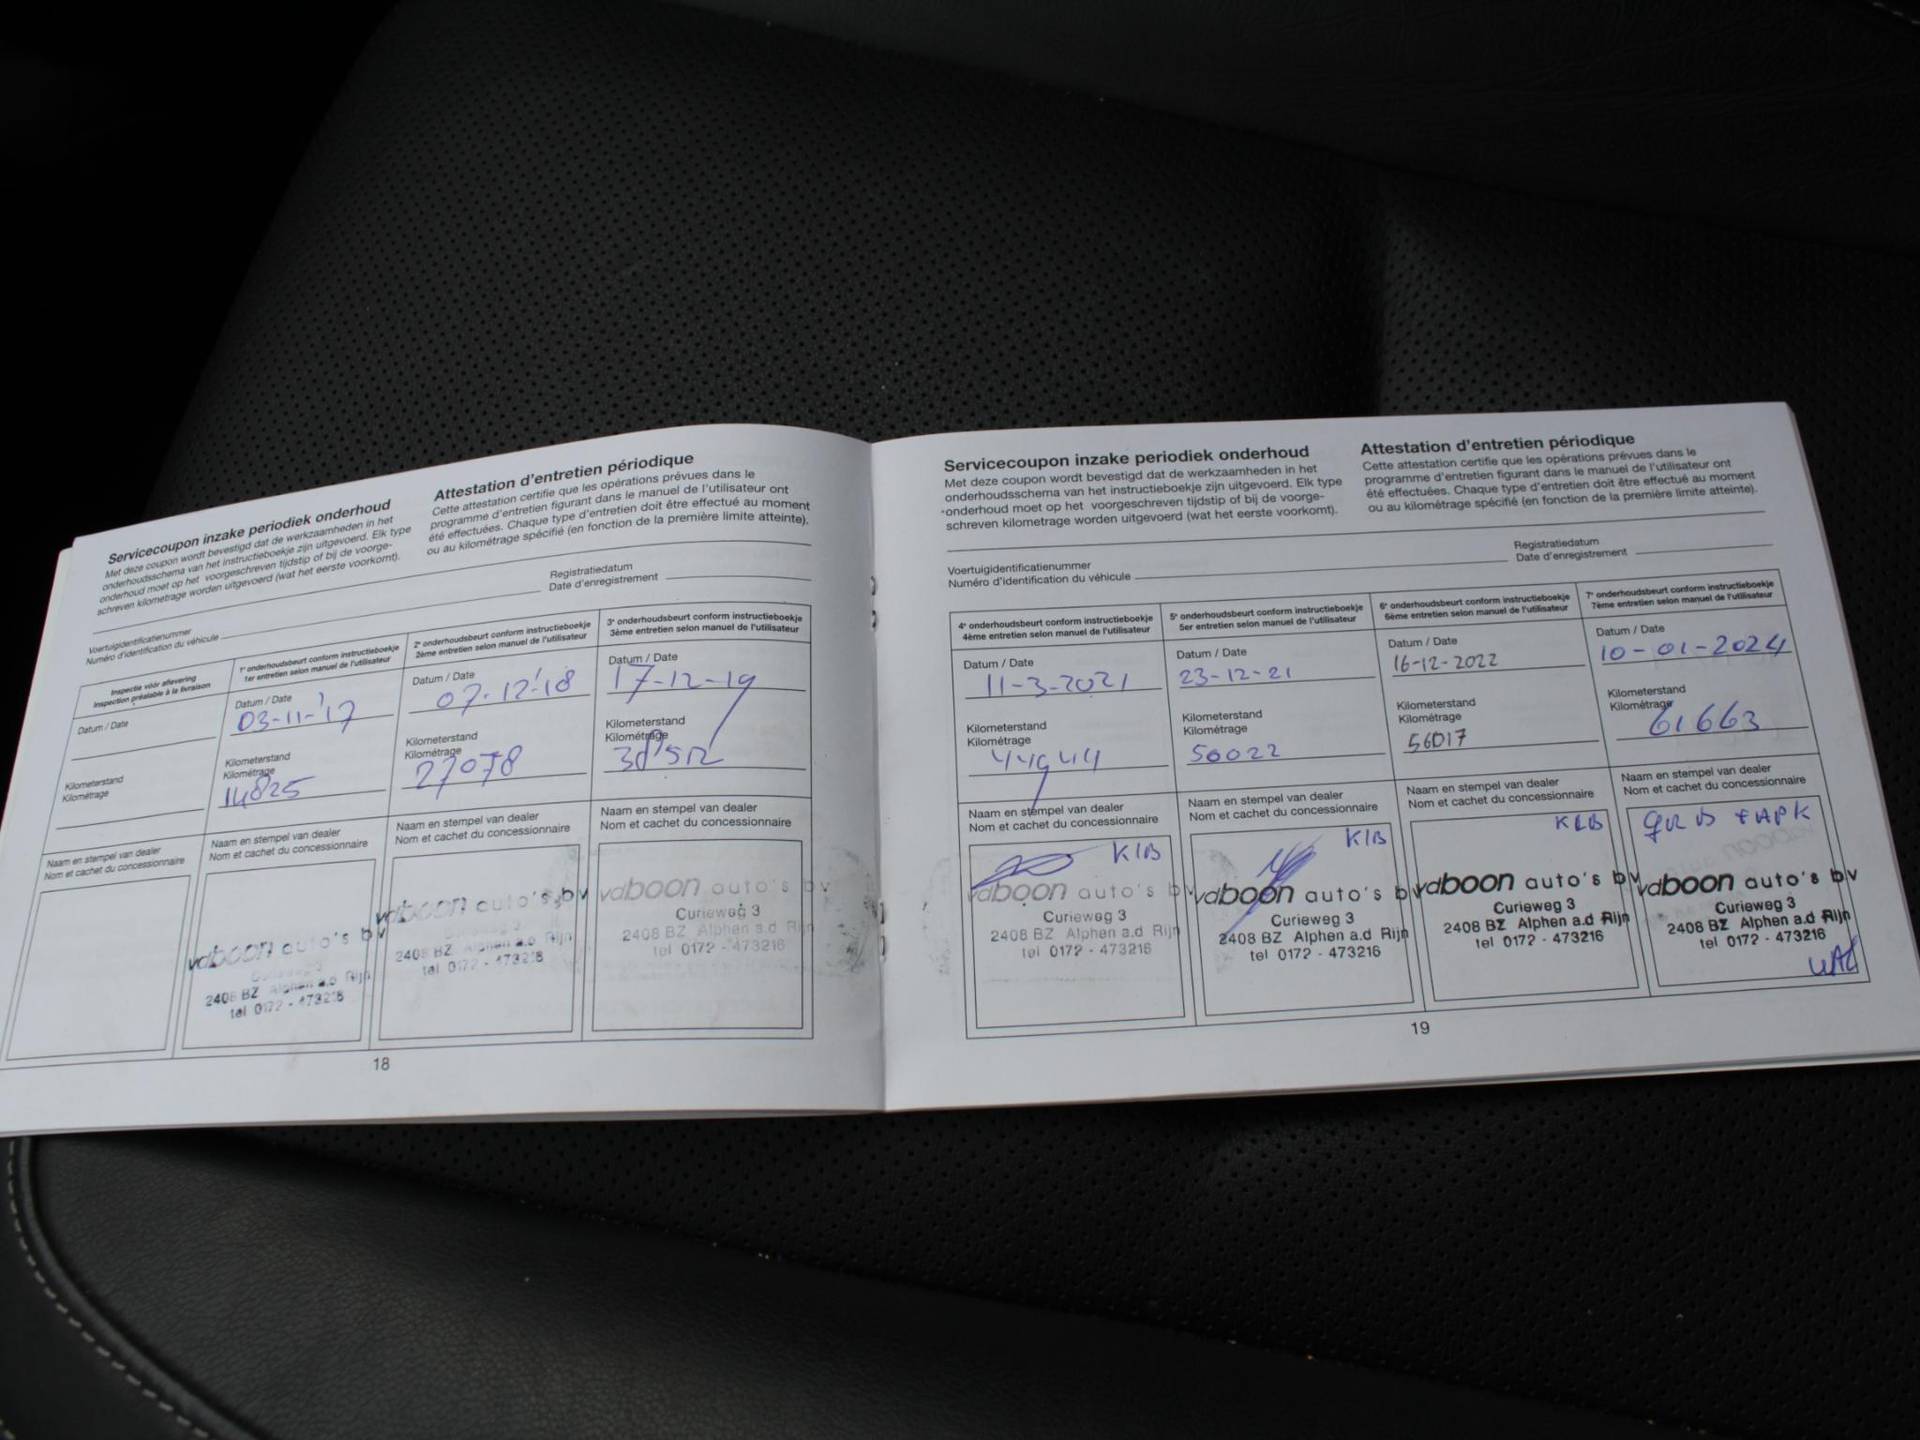 Servicecoupon inzake periodiek onderhoud
Met deze coupon wordt bevestigd dat de werkzaamheden in het
onderhoudsschema van het instructieboekje zijn uitgevoerd. Elk type
onderhoud moet op het voorgeschreven tijdstip of bij de voorge-
schreven kilometrage worden uitgevoerd (wat het eerste voorkomt).
Attestation d'entretien périodique
Cette attestation certifie que les opérations prévues dans le
programme d'entretien figurant dans le manuel de l'utilisateur ont
été effectuées. Chaque type d'entretien doit être effectué au moment
ou au kilométrage spécifié (en fonction de la première limite atteinte).
Voertuigidentificatienummer
Numéro d'identification du véhicule
Registratiedatum
Date d'enregistrement
Inspectie vóór aflevering
Inspection préalable à la livraison
Datum / Date
Kilometerstand
Kilométrage
Naam en stempel van dealer
Nom et cachet du concessionnaire
1e onderhoudsbeurt conform instructieboekje
1er entretien selon manuel de l'utilisateur
Datum / Date
03-11-'17
Kilometerstand
Kilométrage
14825
Naam en stempel van dealer
Nom et cachet du concessionnaire
vdboon auto's bv
2408 BZ Alphen a.d Rijn
tel 0172 - 473216
2e onderhoudsbeurt conform instructieboekje
2ème entretien selon manuel de l'utilisateur
Datum / Date
07-12-'18
Kilometerstand
Kilométrage
27078
Naam en stempel van dealer
Nom et cachet du concessionnaire
vdboon auto's bv
2408 BZ Alphen a.d Rijn
tel 0172 - 473216
3e onderhoudsbeurt conform instructieboekje
3ème entretien selon manuel de l'utilisateur
Datum / Date
17-12-19
Kilometerstand
Kilométrage
Naam en stempel van dealer
Nom et cachet du concessionnaire
vdboon auto's bv
Curieweg 3
2408 BZ Alphen a.d Rijn
tel 0172 - 473216
18
Servicecoupon inzake periodiek onderhoud
Met deze coupon wordt bevestigd dat de werkzaamheden in het
onderhoudsschema van het instructieboekje zijn uitgevoerd. Elk type
onderhoud moet op het voorgeschreven tijdstip of bij de voorge-
schreven kilometrage worden uitgevoerd (wat het eerste voorkomt).
Attestation d'entretien périodique
Cette attestation certifie que les opérations prévues dans le
programme d'entretien figurant dans le manuel de l'utilisateur ont
été effectuées. Chaque type d'entretien doit être effectué au moment
ou au kilométrage spécifié (en fonction de la première limite atteinte).
Voertuigidentificatienummer
Numéro d'identification du véhicule
Registratiedatum
Date d'enregistrement
4e onderhoudsbeurt conform instructieboekje
4ème entretien selon manuel de l'utilisateur
Datum / Date
11-3-2021
Kilometerstand
Kilométrage
44944
Naam en stempel van dealer
Nom et cachet du concessionnaire
KLB
vdboon auto's bv
Curieweg 3
2408 BZ Alphen a.d Rijn
tel 0172 - 473216
5e onderhoudsbeurt conform instructieboekje
5er entretien selon manuel de l'utilisateur
Datum / Date
23-12-21
Kilometerstand
Kilométrage
50022
Naam en stempel van dealer
Nom et cachet du concessionnaire
KLB
vdboon auto's bv
Curieweg 3
2408 BZ Alphen a.d Rijn
tel 0172 - 473216
6e onderhoudsbeurt conform instructieboekje
6ème entretien selon manuel de l'utilisateur
Datum / Date
16-12-2022
Kilometerstand
Kilométrage
56017
Naam en stempel van dealer
Nom et cachet du concessionnaire
KLB
vdboon auto's bv
Curieweg 3
2408 BZ Alphen a.d Rijn
tel 0172 - 473216
7e onderhoudsbeurt conform instructieboekje
7ème entretien selon manuel de l'utilisateur
Datum / Date
10-01-2024
Kilometerstand
Kilométrage
61663
Naam en stempel van dealer
Nom et cachet du concessionnaire
+ APK
vdboon auto's bv
Curieweg 3
2408 BZ Alphen a.d Rijn
tel 0172 - 473216
19